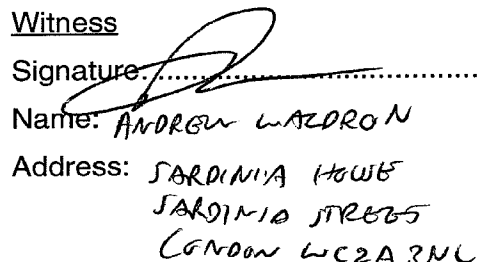 Witness
Signature:
Name: ANDREW WALDRON
Address: SARDINIA HOUSE
SARDINIA STREET
LONDON WC2A 3NL